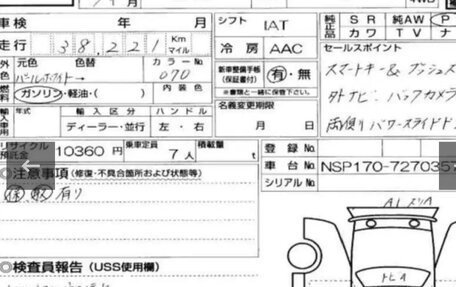 車検 年 月 日 シフト IAT 純正品 SR 純AW P
カワ TV ナ
走行 38,221 Km マイル 冷房 AAC
外色 元色 色替 カラーNo 新車整備手帳(保証書付) 有・無 セールスポイント
パールホワイト→ 070 ※書類と一緒に保管下さい。 スマートキー& プッシュス
燃料 ガソリン・軽油・( ) 内装色 名義変更期限 外ナビ、バックカメラ
輸入車用 年式 輸入区分 ハンドル 月 日 両側パワースライドド
ディーラー・並行 左・右
リサイクル預託金 10360円 乗車定員 7人 積載量 t 登録No
車台No NSP170-7270357
○注意事項(修復・不具合箇所および状態等) シリアルNo
有り
◎検査員報告(USS使用欄)